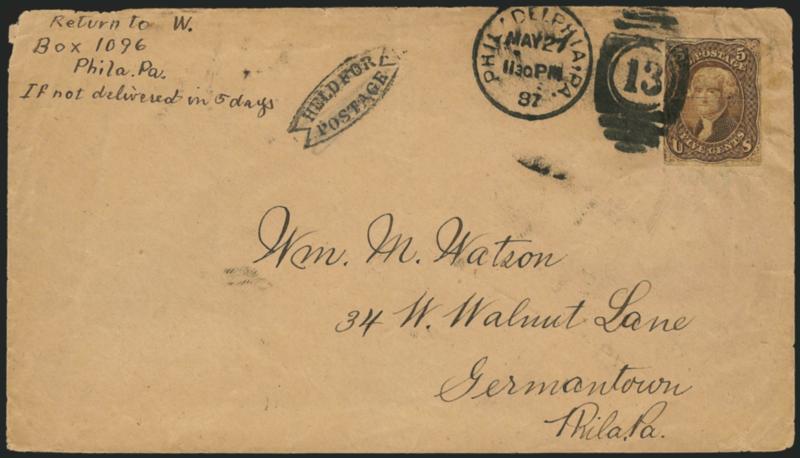 Return to W.
Box 1096
Phila. Pa.
If not delivered in 5 days
HELD FOR
POSTAGE
PHILADELPHIA, PA.
MAY 27
1130 PM
87
13
5 5
POSTAGE
FIVE CENTS
U S
Wm. M. Watson
34 W. Walnut Lane
Germantown
Phila. Pa.